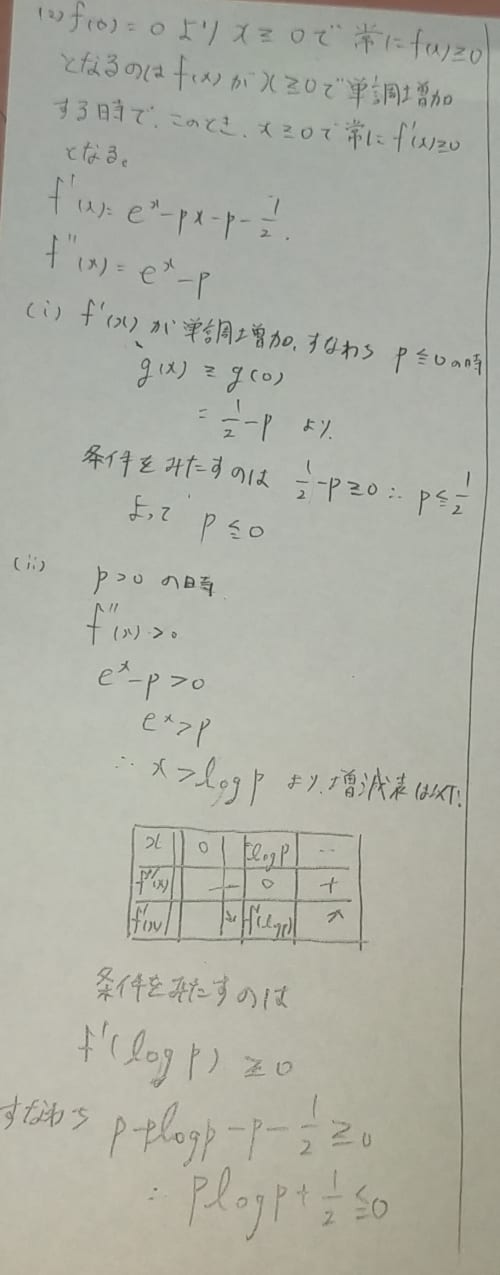 (2) f(0) = 0 より x ≧ 0 で 常に f(x) ≧ 0
となるのは f(x) が x ≧ 0 で 単調増加
する時で、このとき、x ≧ 0 で 常に f'(x) ≧ 0
となる。
f'(x) = e^x - px - p - 1/2.
f''(x) = e^x - p
(i) f'(x) が 単調増加、すなわち p ≦ 0 の時
g(x) ≧ g(0)
= 1/2 - p より、
条件をみたすのは 1/2 - p ≧ 0 ∴ p ≦ 1/2
よって p ≦ 0
(ii) p > 0 の時
f''(x) > 0
e^x - p > 0
e^x > p
∴ x > log p より、増減表は以下
x 0 log p …
f''(x) - 0 +
f'(x) ↘ f'(log p) ↗
条件をみたすのは
f'(log p) ≧ 0
すなわち p - p log p - p - 1/2 ≧ 0
∴ p log p + 1/2 ≦ 0